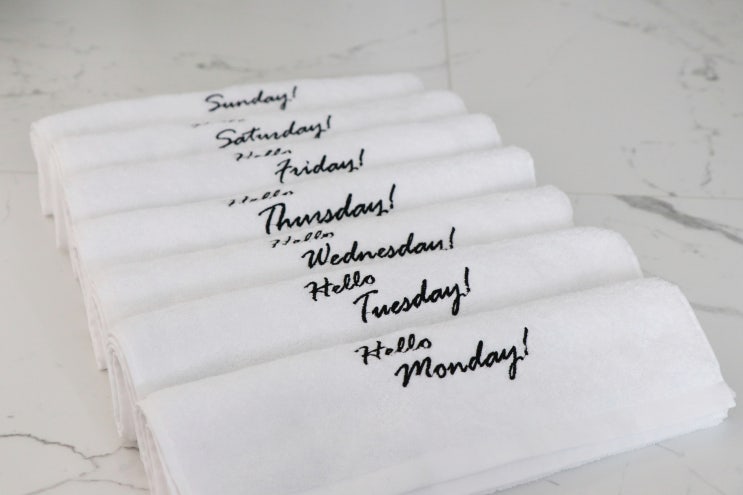 Sunday!
Saturday!
Hello
Friday!
Hello
Thursday!
Hello
Wednesday!
Hello
Tuesday!
Hello
Monday!